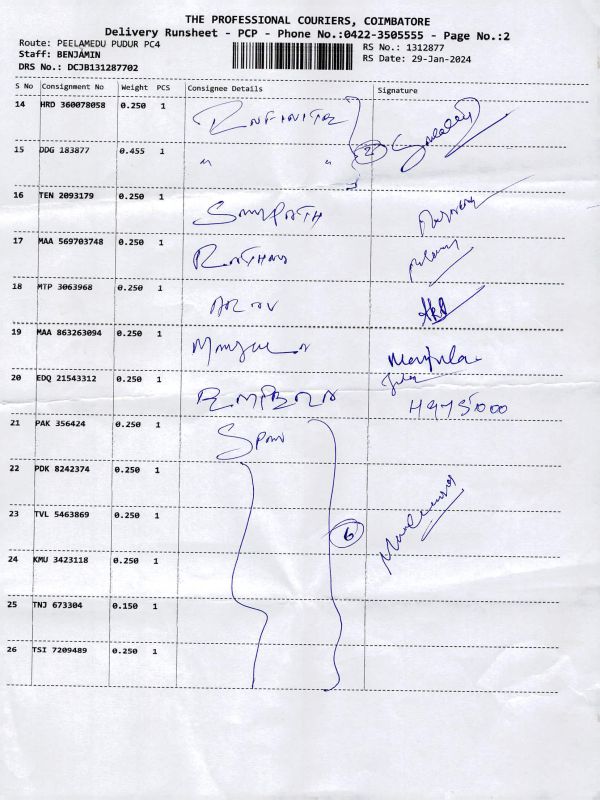 THE PROFESSIONAL COURIERS, COIMBATORE
Delivery Runsheet - PCP - Phone No.:0422-3505555 - Page No.:2
Route: PEELAMEDU PUDUR PC4
RS No.: 1312877
Staff: BENJAMIN
RS Date: 29-Jan-2024
DRS No.: DCJB131287702
S No Consignment No Weight PCS Consignee Details Signature
14 HRD 360078058 0.250 1
15 DDG 183877 0.455 1 " " 2
16 TEN 2093179 0.250 1 SAMPATH
17 MAA 569703748 0.250 1
18 MTP 3063968 0.250 1
19 MAA 863263094 0.250 1 Manjula
20 EDQ 21543312 0.250 1
21 PAK 356424 0.250 1
22 PDK 8242374 0.250 1
23 TVL 5463869 0.250 1 6
24 KMU 3423118 0.250 1
25 TNJ 673304 0.150 1
26 TSI 7209489 0.250 1